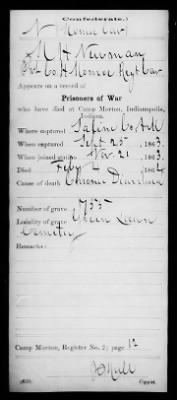 (Confederate.)
N (Monroe Cav)
M H Newman
Pvt Co H Monroe Regt Cav
Appears on a record of
Prisoners of War
who have died at Camp Morton, Indianapolis,
Indiana.
Where captured Saline Co Ark
When captured Sept 25, 1863.
When joined station Nov. 21, 1863.
Died Feby 2, 1864
Cause of death Chronic Diarrhœa
Number of grave 755
Locality of grave Green Lawn
Cemetery
Remarks:
Camp Morton, Register No. 2; page 12
Copyist.